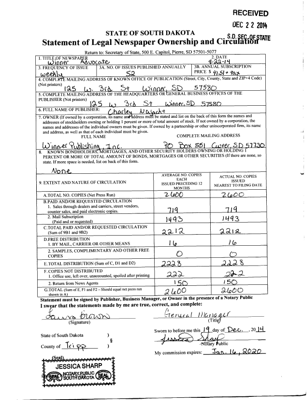 RECEIVED
DEC 22 2014
S.D. SEC. OF STATE
STATE OF SOUTH DAKOTA
Statement of Legal Newspaper Ownership and Circulation
Return to: Secretary of State, 500 E. Capitol, Pierre, SD 57501-5077
1. TITLE OF NEWSPAPER
Winner Advocate
2. DATE
3. FREQUENCY OF ISSUE
weekly
3A. NO. OF ISSUES PUBLISHED ANNUALLY
52
3B. ANNUAL SUBSCRIPTION
PRICE $
4. COMPLETE MAILING ADDRESS OF KNOWN OFFICE OF PUBLICATION (Street, City, County, State and ZIP+4 Code)
(Not printers)
125 W. 3rd St Winner, SD 57580
5. COMPLETE MAILING ADDRESS OF THE HEADQUARTERS OR GENERAL BUSINESS OFFICES OF THE
PUBLISHER (Not printer)
125 W. 3rd St Winner, SD 57580
6. FULL NAME OF PUBLISHER:
Charley Najacht
7. OWNER (If owned by a corporation, its name and address must be stated and list on the back of this form the names and
addresses of stockholders owning or holding 1 percent or more of total amount of stock. If not owned by a corporation, the
names and addresses of the individual owners must be given. If owned by a partnership or other unincorporated firm, its name
and address, as well as that of each individual must be given.
FULL NAME
COMPLETE MAILING ADDRESS
Winner Publishing Inc.
PO Box 551 Custer, SD 57730
8. KNOWN BONDHOLDERS, MORTGAGEES, AND OTHER SECURITY HOLDERS OWNING OR HOLDING 1
PERCENT OR MORE OF TOTAL AMOUNT OF BONDS, MORTGAGES OR OTHER SECURITIES (If there are none, so
state. If more space is needed, list on back of this form.
None
9. EXTENT AND NATURE OF CIRCULATION
AVERAGE NO. COPIES
EACH
ISSUED PRECEDING 12
MONTHS
ACTUAL NO. COPIES
ISSUED
NEAREST TO FILING DATE
A. TOTAL NO. COPIES (Net Press Run)
2600
2600
B. PAID AND/OR REQUESTED CIRCULATION
1. Sales through dealers and carriers, street vendors,
counter sales, and paid electronic copies.
719
719
2. Mail Subscription
(Paid and or requested)
1493
1493
C. TOTAL PAID AND/OR REQUESTED CIRCULATION
(Sum of 9B1 and 9B2)
2212
2212
D. FREE DISTRIBUTION
1. BY MAIL, CARRIER OR OTHER MEANS
16
16
2. SAMPLES, COMPLIMENTARY AND OTHER FREE
COPIES
0
0
E. TOTAL DISTRIBUTION (Sum of C, D1 and D2)
2228
2228
F. COPIES NOT DISTRIBUTED
1. Office use, left over, unaccounted, spoiled after printing
222
222
2. Return from News Agents
150
150
G. TOTAL (Sum of E, F1 and F2 - Should equal net press run
shown in A)
2600
2600
Statement must be signed by Publisher, Business Manager, or Owner in the presence of a Notary Public
I swear that the statements made by me are true, correct, and complete:
Laura Brown
(Signature)
General Manager
(Title)
State of South Dakota )
County of Tripp )
Sworn to before me this 19 day of Dec. 2014
Notary Public
(Seal)
My commission expires: Jan. 16, 2020
JESSICA SHARP
NOTARY PUBLIC
SOUTH DAKOTA
SEAL